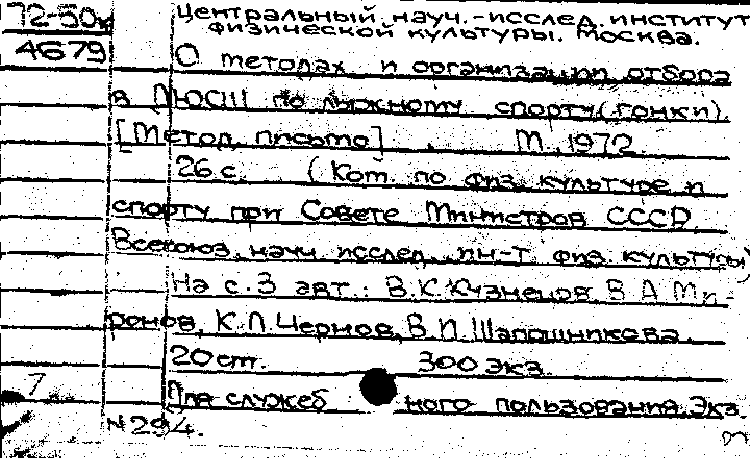 72-50к
4679
Центральный науч.-исслед. институт
физической культуры. Москва.
О методах и организации отбора
в ДЮСШ по лыжному спорту (гонки).
[Метод. письмо] М., 1972.
26 с. (Ком. по физ. культуре и
спорту при Совете Министров СССР.
Всесоюз. науч. исслед. ин-т физ. культуры)
На с. 3 авт.: В.К. Кузнецов, В.А. Ми-
ронов, К.Л. Чернов, В.П. Шапошникова.
20 от. 300 экз.
7 Для служеб ного пользования. Экз.
№ 294.